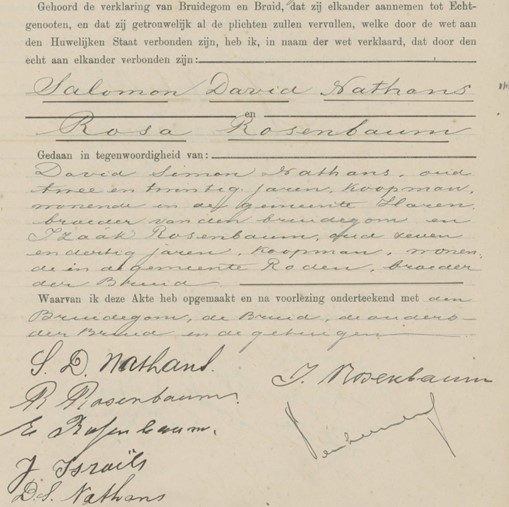 Gehoord de verklaring van Bruidegom en Bruid, dat zij elkander aannemen tot Echt-
genooten, en dat zij getrouwelijk al de plichten zullen vervullen, welke door de wet aan
den Huwelijken Staat verbonden zijn, heb ik, in naam der wet verklaard, dat door den
echt aan elkander verbonden zijn:
Salomon David Nathans
en
Rosa Rosenbaum
Gedaan in tegenwoordigheid van:
David Simon Nathans, oud
twee en twintig jaren, koopman,
wonende in de gemeente Haren,
broeder van den bruidegom en
Izaäk Rosenbaum, oud zeven
en dertig jaren, koopman, wonen-
de in de gemeente Roden, broeder
der Bruid
Waarvan ik deze Akte heb opgemaakt en na voorlézing onderteekend met den
Bruidegom, de Bruid, de ouders
der Bruid en de getuigen
S. D. Nathans.
I. Rosenbaum
R Rosenbaum.
E Rosenbaum.
J Israëls
D.S. Nathans